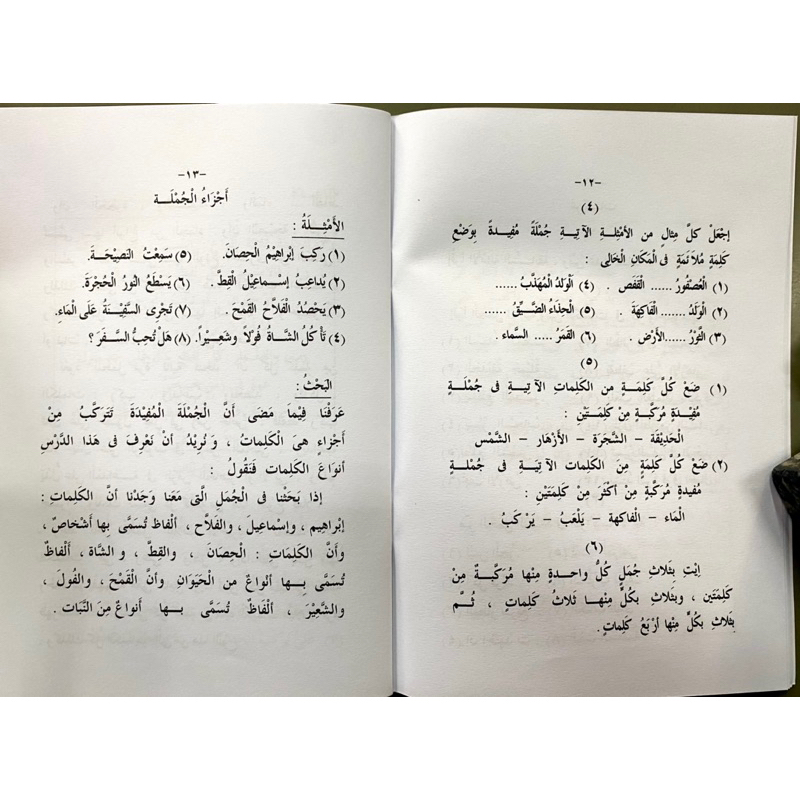 -١٢-
(٤)
اِجْعَلْ كلَّ مِثالٍ من الأمْثِلةِ الآتِيَةِ جُمْلَةً مُفِيدَةً بِوَضْعِ
كَلِمَةٍ مُلاَئمَةٍ فى المَكَانِ الْخَالِى :
(١) الْعُصْفُورُ ...... الْقَفَص . (٤) اَلْوَلَدُ الْمُهَذَّبُ ......
(٢) الْوَلَدُ ....... الْفَاكِهَةَ . (٥) الْحِذَاءُ الضَّيِّقُ ......
(٣) الثَّوْرُ ......الأَرْضَ . (٦) القَمَرُ ..... السَّماء .
(٥)
(١) ضَعْ كُلَّ كَلِمَةٍ من الكَلِماتِ الآتِيَةِ فى جُمْلَةٍ
مُفِيدَةٍ مُرَكَّبةٍ مِنْ كَلِمَتَيْنِ :
الْحَدِيْقَة – الشَّجَرَة – الأَزْهَار – الشَّمْس
(٢) ضَعْ كُلَّ كَلِمَةٍ مِنَ الكَلِمات الآتِيَةِ فى جُمْلةٍ
مُفيدةٍ مُرَكَّبةٍ مِنْ أَكْثَرَ مِنْ كَلِمَتَيْنِ :
الْمَاء – الفاكهة – يَلْعَبُ – يَرْكَبُ .
(٦)
اِيْتِ بِثَلاثِ جُمَلٍ كُلُّ واحدةٍ مِنْها مُرَكَّبةٌ مِنْ
كَلِمَتَين ، وبثَلاثٍ بكُلٍّ مِنْهـا ثَلاثُ كَلِماتٍ ، ثُـمَّ
بِثَلاثٍ بكُلٍّ مِنْها أَرْبَعُ كَلِماتٍ .
-١٣-
أَجْزَاءُ الْجُمْلَـة
الأَمْثِلَةُ :
(١) رَكِبَ اِبْرَاهِيْمُ الْحِصَانَ. (٥) سَمِعْتُ النَّصِيْحَةَ.
(٢) يُدَاعِبُ إِسْماعِيْلُ الْقِطَّ . (٦) يَسْطَعُ النُورُ الْحُجْرَةَ.
(٣) يَحْصُدُ الْفَلاَّحُ الْقَمْحَ . (٧) تَجْرِى السَّفِيْنَةُ عَلَى الْمَاءِ.
(٤) تَأْكُلُ الشَّاةُ فُوْلاً وشَعِيْراً. (٨) هَلْ تُحِبُّ السَّفَرَ ؟
البَحْثُ :
عَرَفْنَا فِيْمَا مَضَى أنَّ الْجُمْلَةَ الْمُفِيْدَةَ تَتَرَكَّبُ مِنْ
أَجْزاءٍ هىَ الْكَلِمَاتُ ، وَنُرِيْدُ أنْ نَعْرِفَ فى هَذَا الدَّرْسِ
أنْواعَ الكَلِمات فنَقُولُ :
إذا بَحَثْنا فى الْجُمَلِ الَّتِى مَعَنا وَجَدْنا أنَّ الكَلِماتِ :
اِبْراهِيم ، وإسْماعِيلَ ، والفَلاَّحِ ، ألْفاظ تُسَمَّى بِها أَشْخاصٌ ،
وأنَّ الكَلِمَاتِ : الْحِصَانَ ، والقِطَّ ، والشَّاة ، ألْفاظٌ
تُسَمَّى بِـها أنْواعٌ من الْحَيَوَانِ وأنَّ الْقَمْحَ ، والفُولَ ،
والشَّعِيْرَ ، ألْفَاظٌ تُسَمَّى بـها أنواعٌ مِنَ النَّبات .